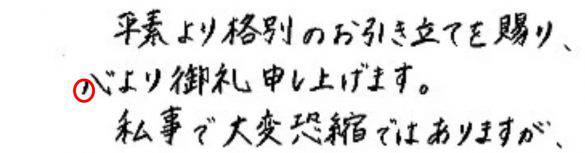 平素より格別のお引き立てを賜り、
心より御礼申し上げます。
私事で大変恐縮ではありますが、